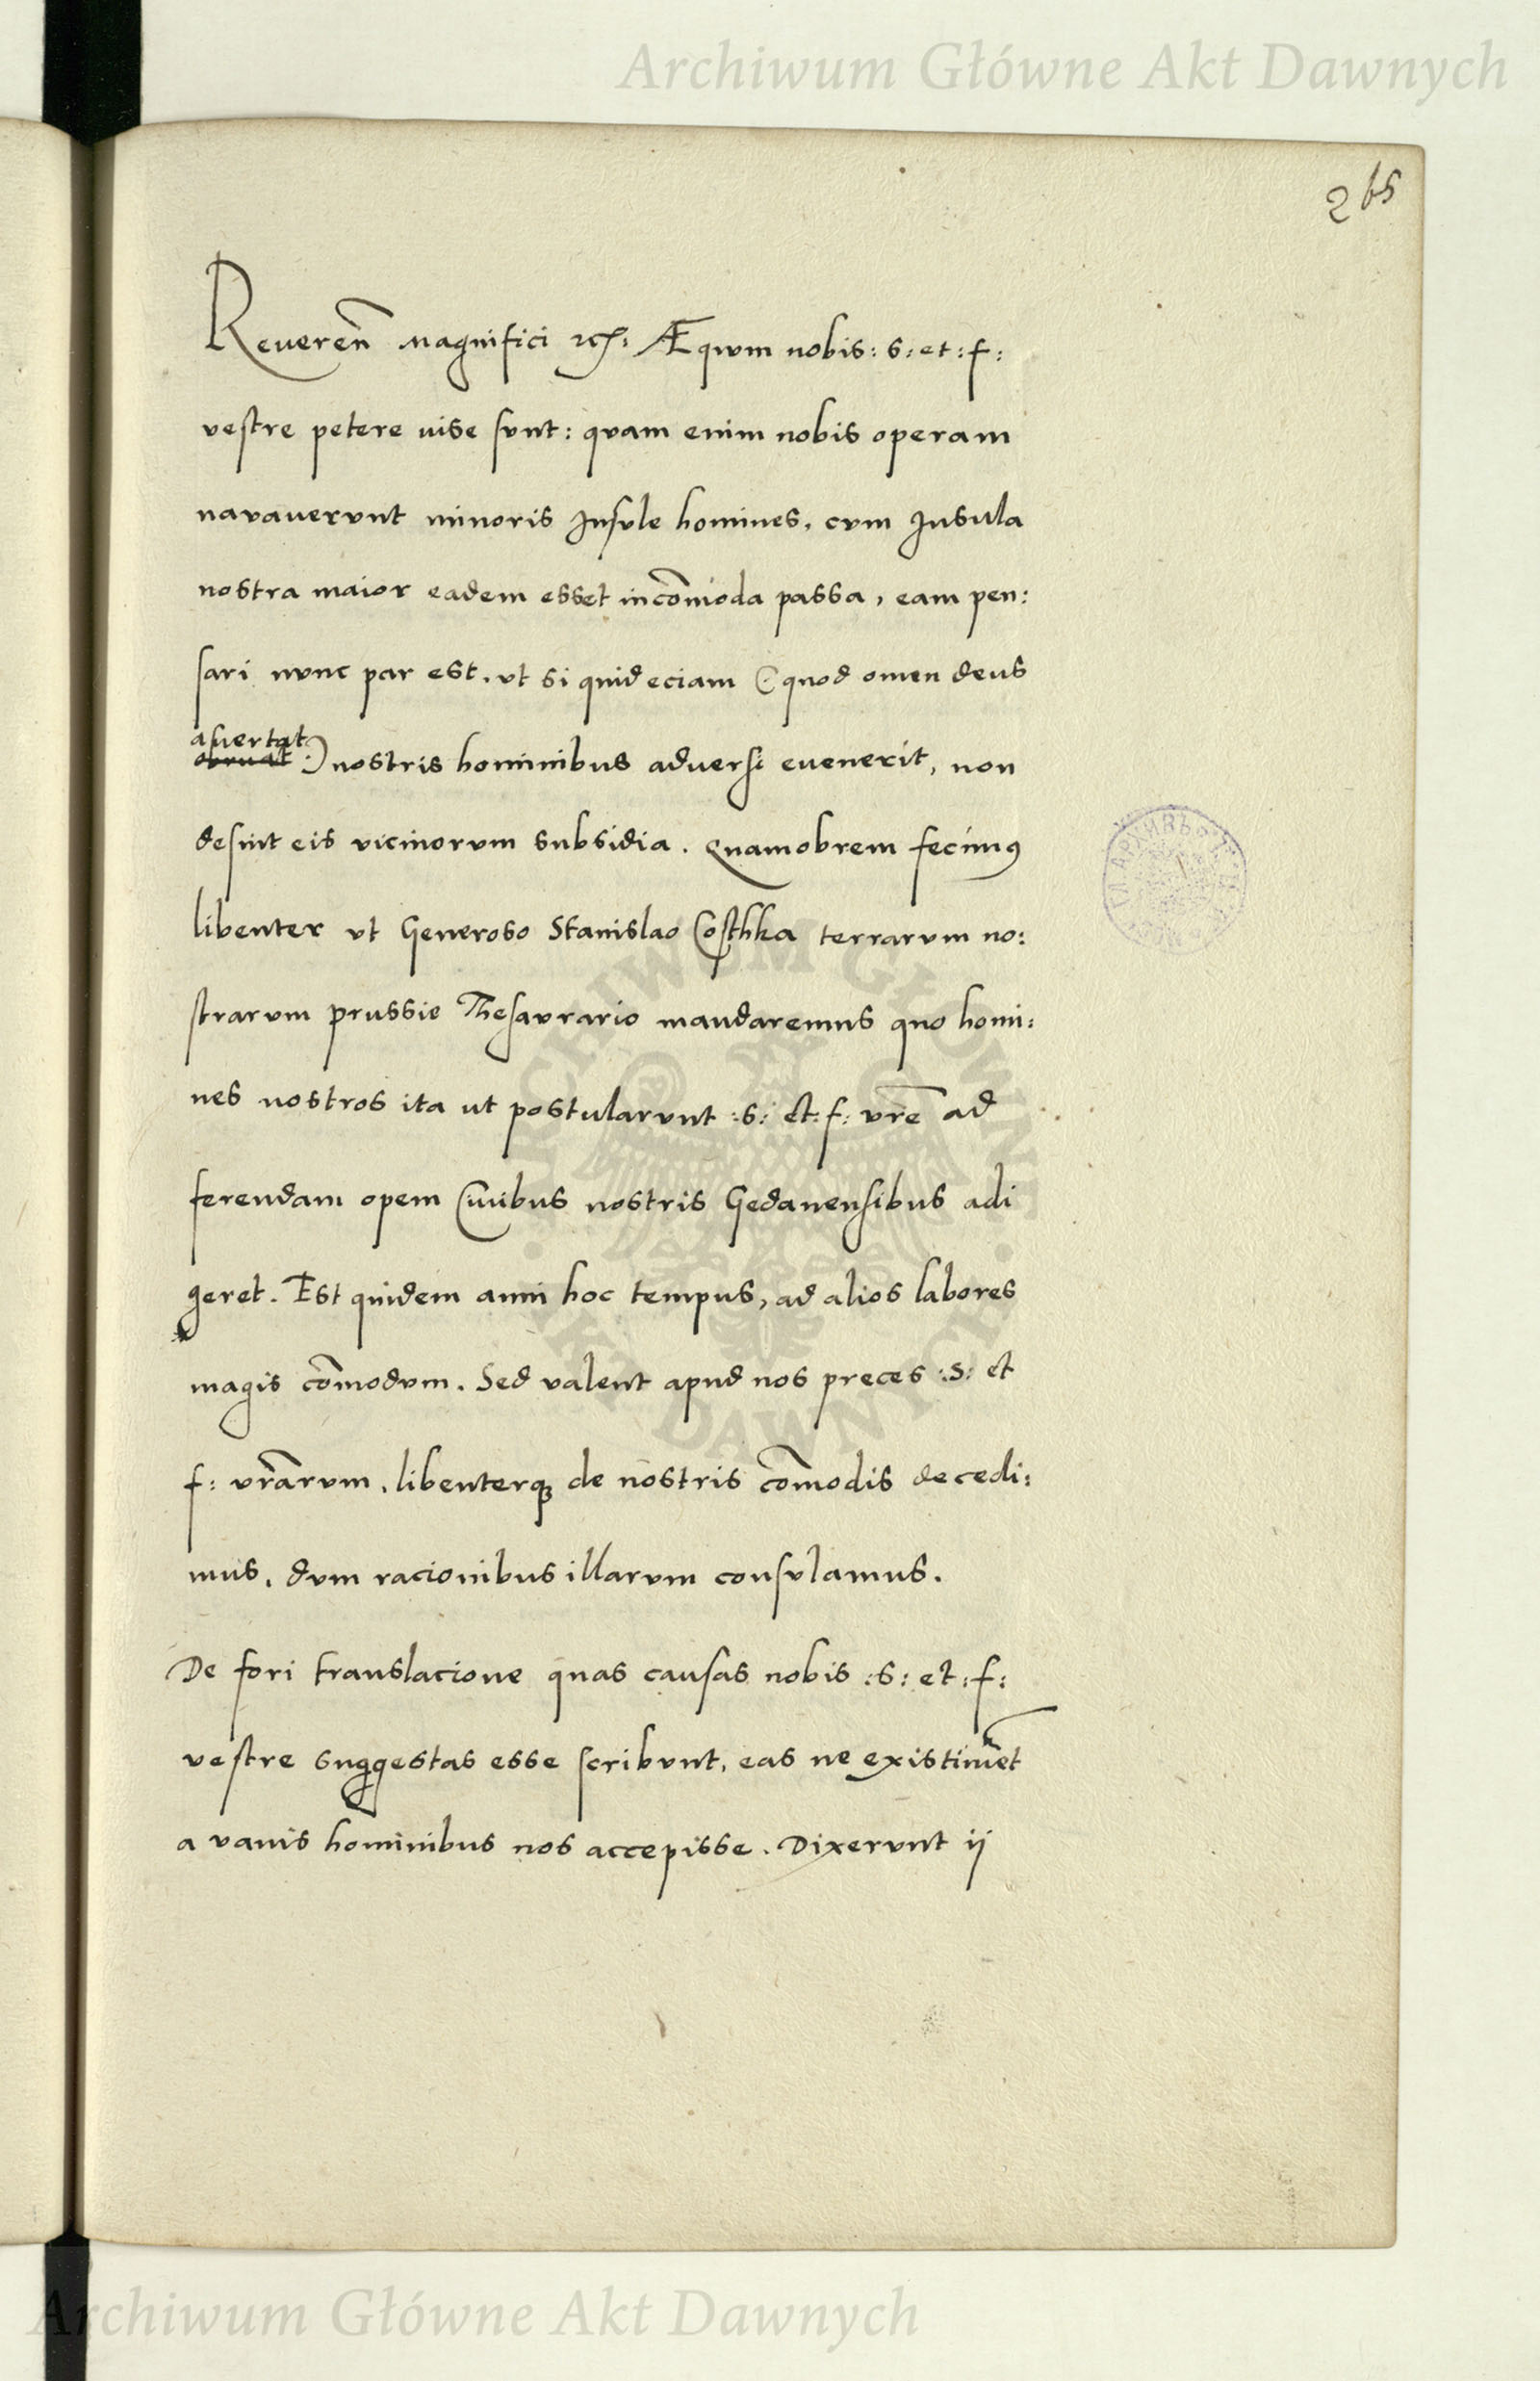 Archiwum Główne Akt Dawnych
265
Reveren̄ Magnifici etc: Æqvm nobis: s: et: f:
vestre petere uise svnt: qvam enim nobis operam
navavervnt minoris Insvle homines, cvm Insula
nostra maior eadem esset incōmoda passa, eam pen:
sari nvnc par est, vt si quid eciam (: quod omen deus
avertat
obruat :) nostris hominibus adversi evenerit, non
desint eis vicinorvm subsidia. Quamobrem fecimus
libenter vt Generoso Stanislao Costhka terrarvm no:
strarvm prussie Thesavrario mandaremus quo homi:
nes nostros ita ut postularvnt :s: et: f: vrē ad
ferendam opem Civibus nostris Gedanensibus adi
geret. Est quidem anni hoc tempus, ad alios labores
magis cōmodvm. Sed valent apud nos preces :s: et
f: vrārvm, libenterq3 de nostris cōmodis decedi:
mus, dvm racionibus illarvm consvlamus.
De fori translacione quas causas nobis :s: et: f:
vestre suggestas esse scribvnt, eas ne existimēt
a vanis hominibus nos accepisse. Dixervnt ij
ARCHIWUM GŁÓWNE
AKT DAWNYCH
Archiwum Główne Akt Dawnych